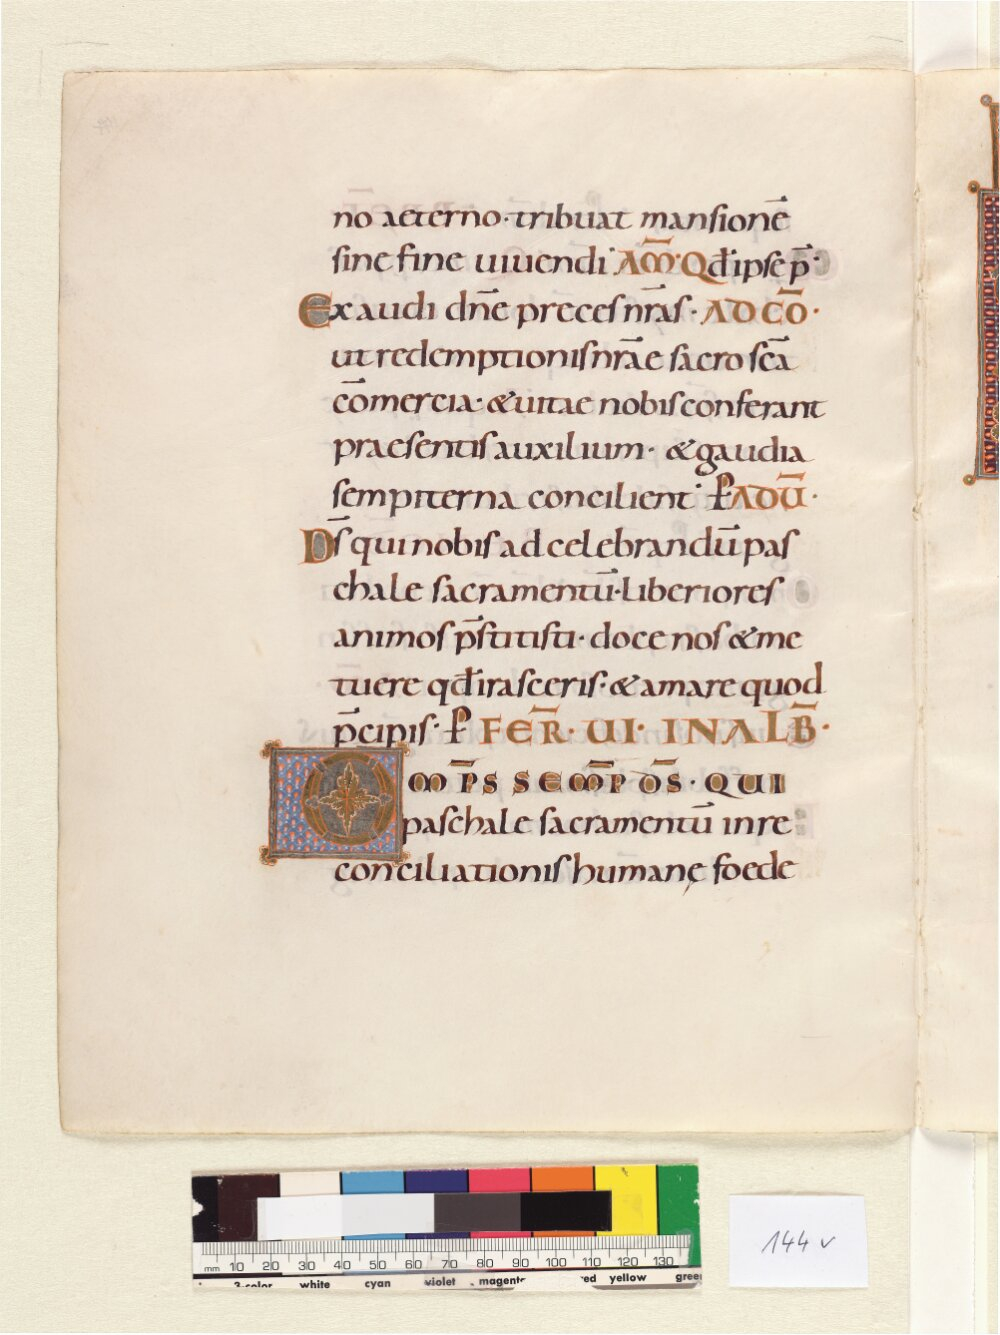 no aeterno· tribuat mansionē
sine fine uiuendi· AM̄· Qđ ipse p̄·
Exaudi dn̄e preces nr̄as· AD CŌ·
ut redemptionis nr̄ae sacrosc̄a
cōmercia· & uitae nobis conferant
praesentis auxilium· & gaudia
sempiterna concilient· P̄ AD Ū·
Ds̄ qui nobis ad celebrandū pas
chale sacramentū· liberiores
animos p̄stitisti· doce nos & me
tuere qđ irasceris· & amare quod
p̄cipis· P̄ FER̄· UI· IN ALB̄·
OM̄PS SEMP̄ DS̄· QUI
paschale sacramentū in re
conciliationis humanę foede
144 v
mm 10 20 30 40 50 60 70 80 90 100 110 120 130
3-color white cyan violet magenta red yellow green